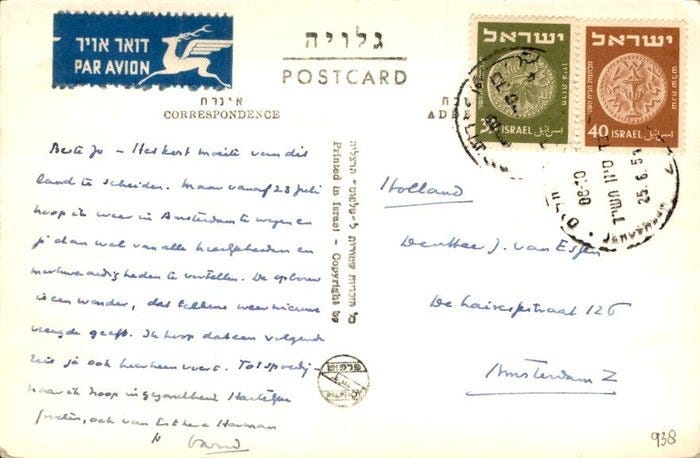 דואר אויר
PAR AVION
גלויה
POSTCARD
CORRESPONDENCE
ADD
ישראל
ISRAEL
ישראל
40 ISRAEL
08-10
25.6.5
Printed in Israel - Copyright by
Beste Jo - Het kost moeite van dit
land te scheiden. Maar vanaf 23 juli
hoop ik weer in Amsterdam te wezen en
je dan wel van alle heerlijkheden en
merkwaardigheden te vertellen. De opbouw
is een wonder, dat telkens weer nieuwe
vreugde geeft. Ik hoop dat een volgende
reis je ook hierheen voert. Tot spoedig
naar ik hoop in gezondheid Hartelijke
groeten, ook van Esther
Holland
Den Heer J. van Essen
De Lairessestraat 126
Amsterdam Z
938